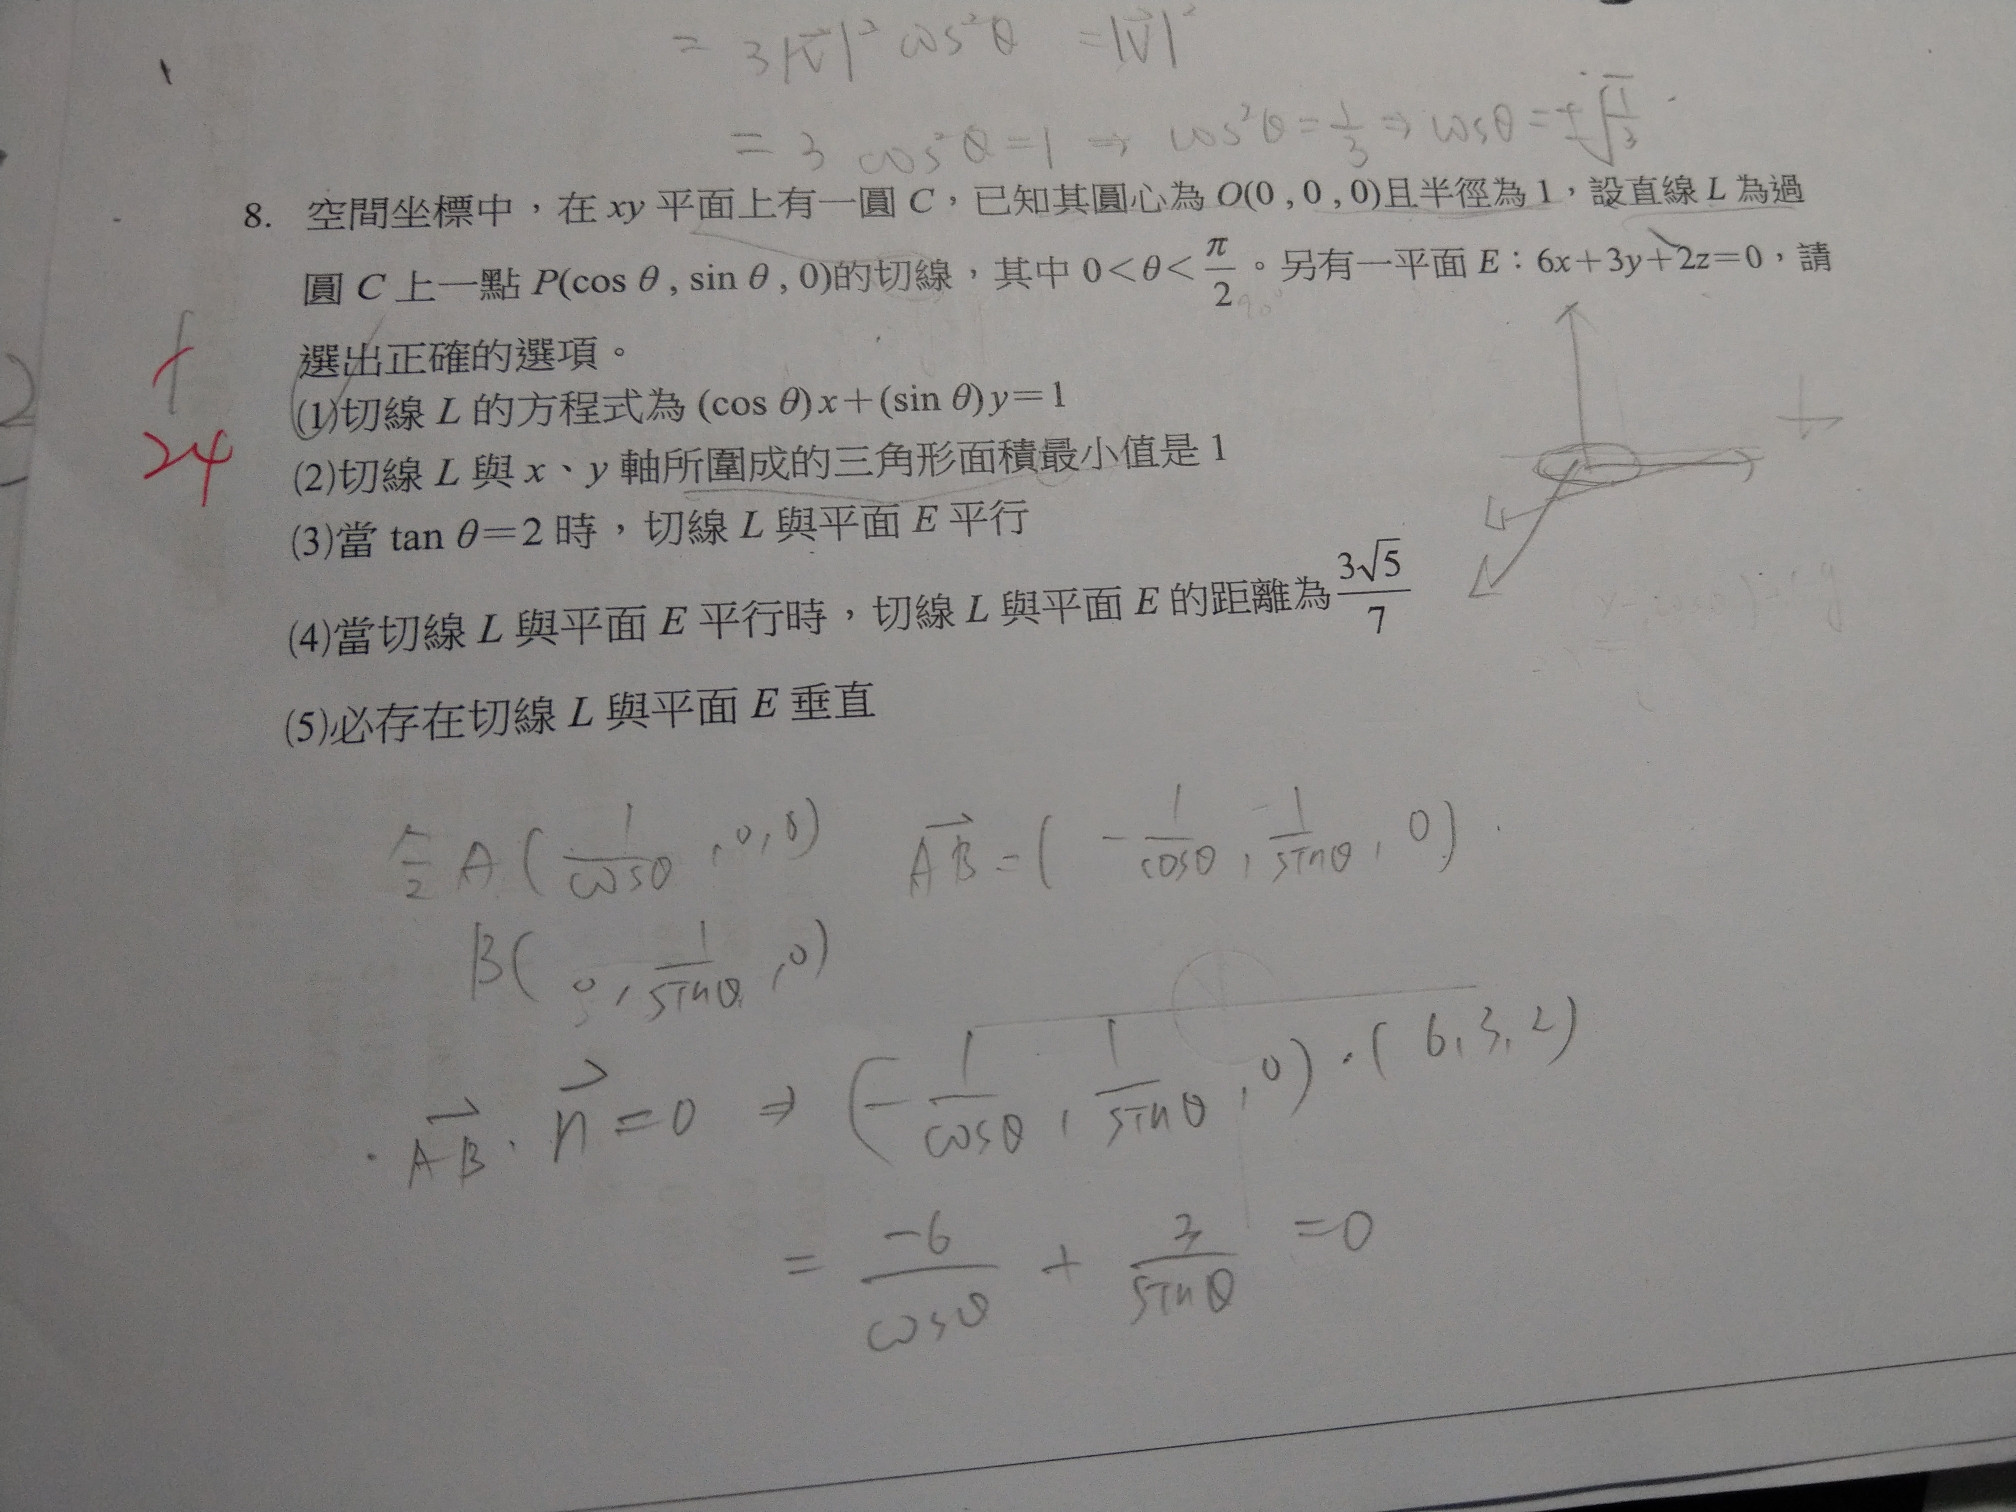 = 3|v⃗|² cos²θ = |v⃗|²
= 3 cos²θ = 1 ⇒ cos²θ = 1/3 ⇒ cosθ = ±√(1/3)
8. 空間坐標中，在 xy 平面上有一圓 C，已知其圓心為 O(0 , 0 , 0)且半徑為 1，設直線 L 為過
圓 C 上一點 P(cos θ , sin θ , 0)的切線，其中 0＜θ＜π/2。另有一平面 E：6x＋3y＋2z＝0，請
90°
選出正確的選項。
(1)切線 L 的方程式為 (cos θ)x＋(sin θ)y＝1
24
(2)切線 L 與 x、y 軸所圍成的三角形面積最小值是 1
(3)當 tan θ＝2 時，切線 L 與平面 E 平行
(4)當切線 L 與平面 E 平行時，切線 L 與平面 E 的距離為 3√5/7
(5)必存在切線 L 與平面 E 垂直
A( 1/cosθ , 0, 0) AB⃗ = ( -1/cosθ , 1/sinθ , 0)
B( 0, 1/sinθ , 0)
AB⃗ · n⃗ = 0 ⇒ (-1/cosθ , 1/sinθ , 0) · ( 6, 3, 2)
= -6/cosθ + 3/sinθ = 0